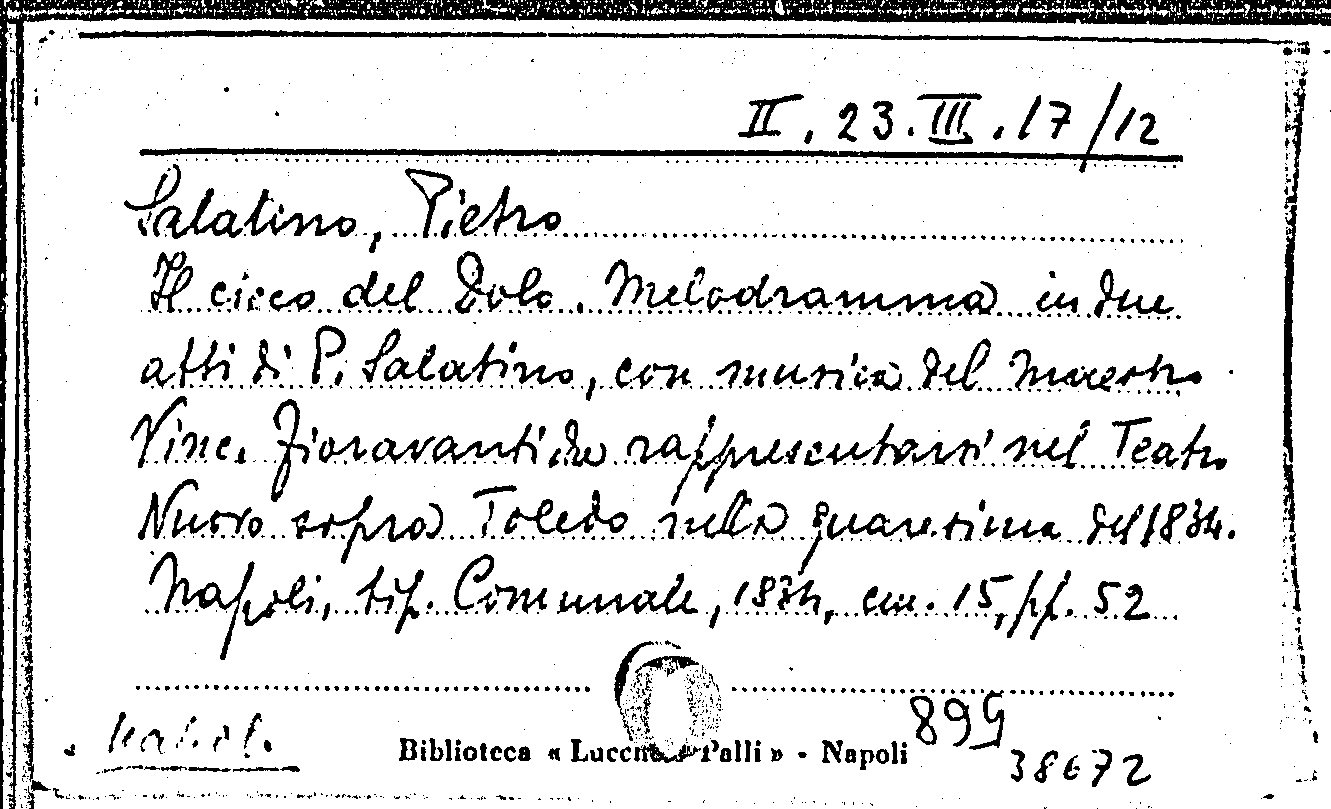 II. 23. III. 17/12
Salatino, Pietro
Il cieco del Dolo. Melodramma in due
atti di P. Salatino, con musica del maestro
Vinc. Fioravanti da rappresentarsi nel Teatro
Nuovo sopra Toledo nella quaresima del 1834.
Napoli, tip. Comunale, 1834, cm. 15, pp. 52
Biblioteca « Lucchesi Palli » - Napoli
899
38672